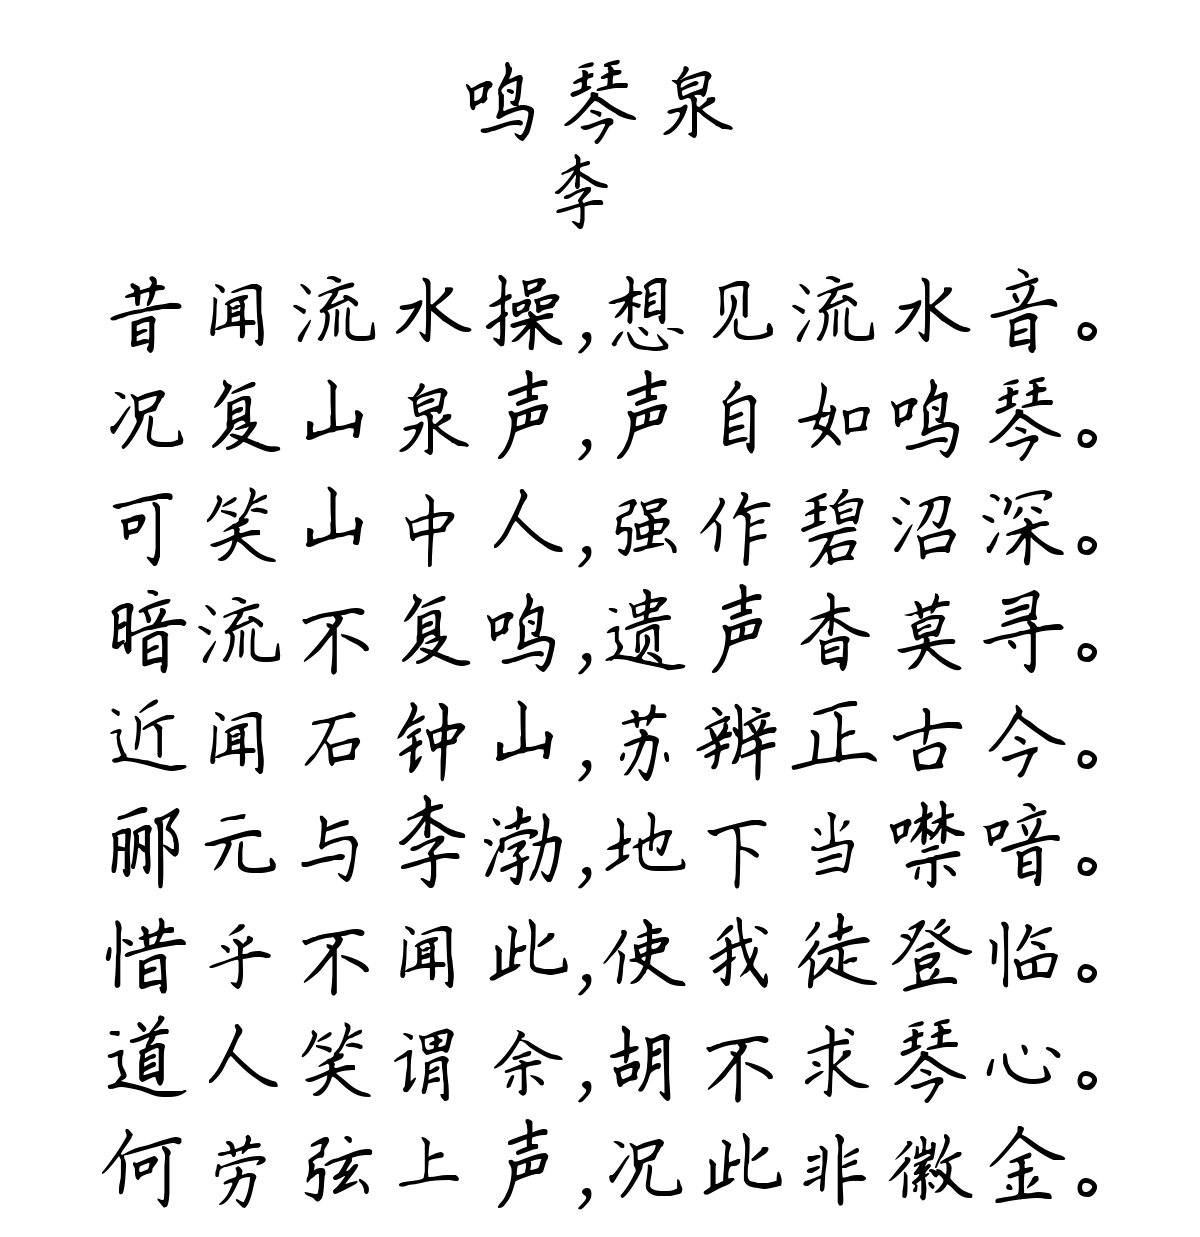 鸣琴泉
李
昔闻流水操,想见流水音。
况复山泉声,声自如鸣琴。
可笑山中人,强作碧沼深。
暗流不复鸣,遗声杳莫寻。
近闻石钟山,苏辨正古今。
郦元与李渤,地下当噤喑。
惜乎不闻此,使我徒登临。
道人笑谓余,胡不求琴心。
何劳弦上声,况此非徽金。